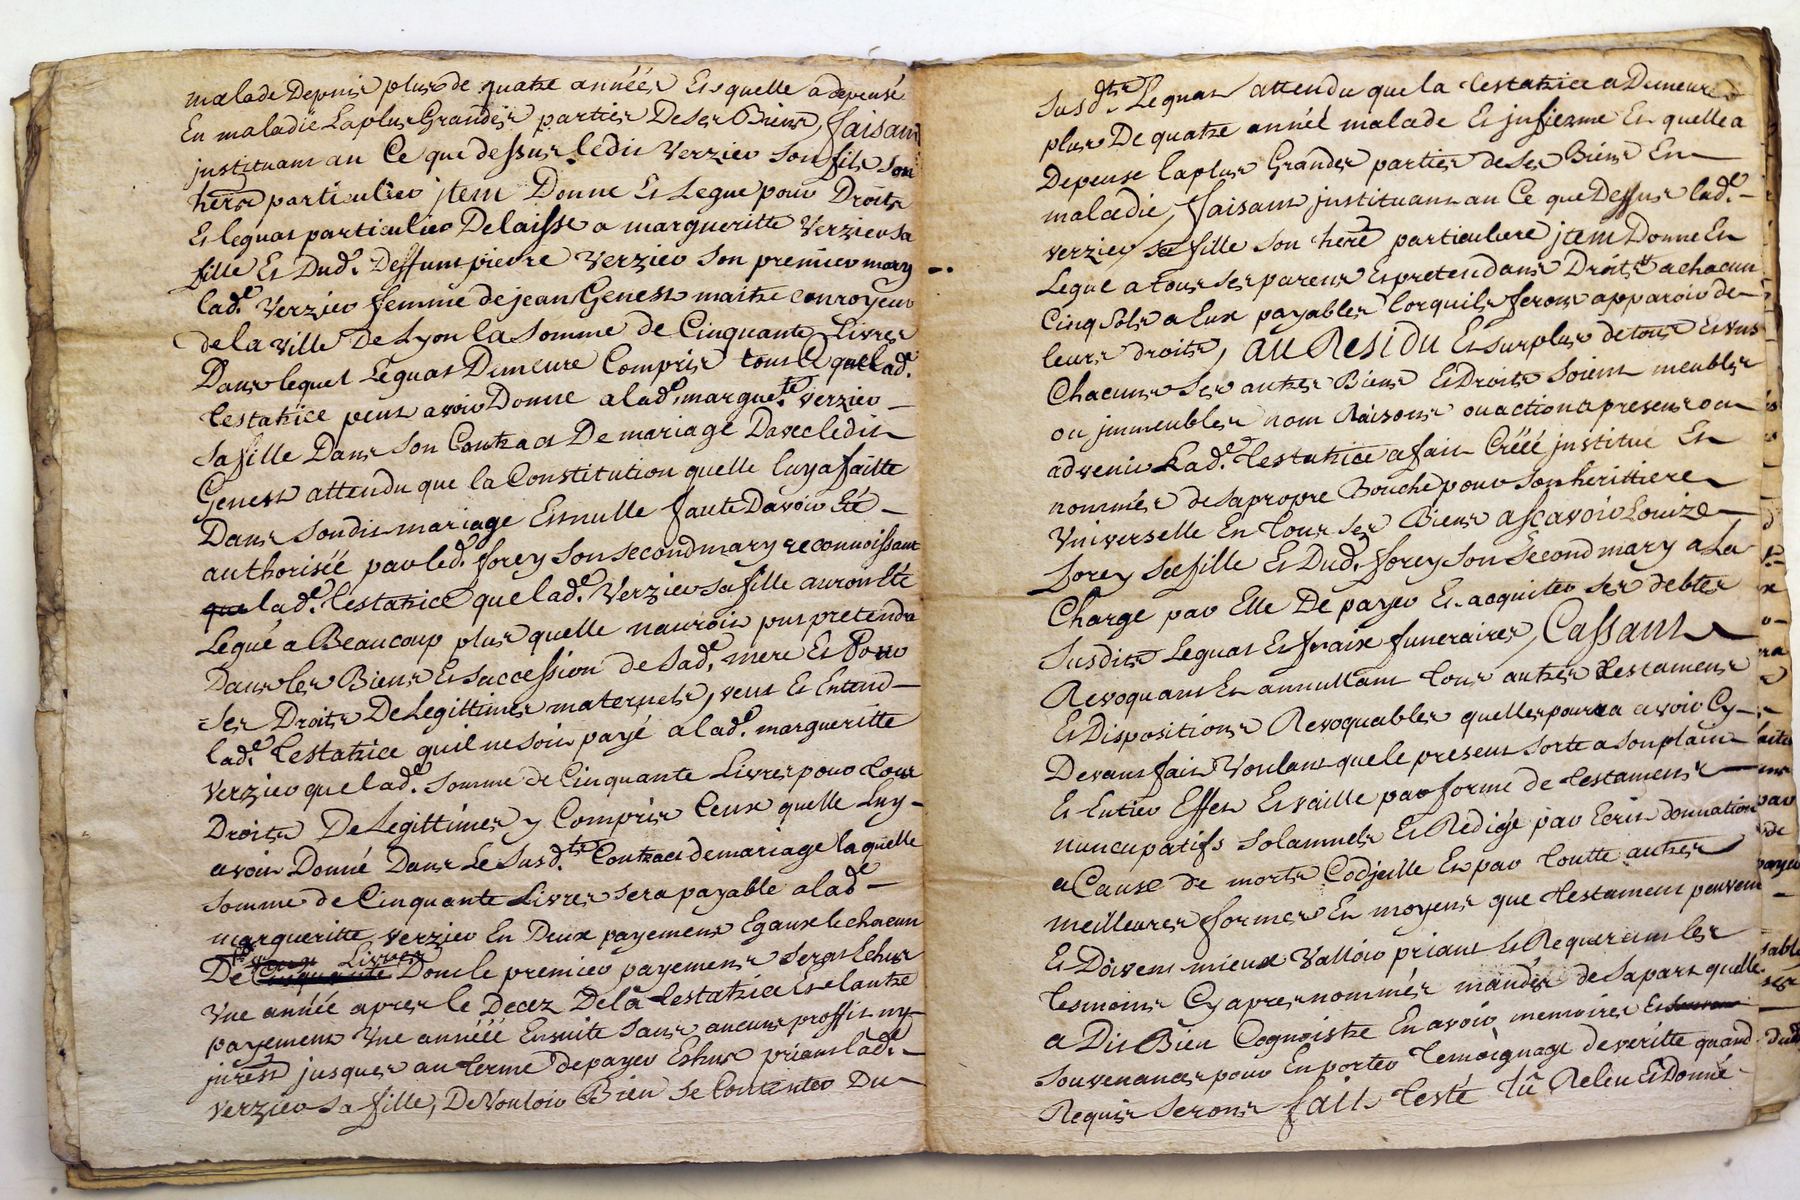 malade Depuis plus de quatre années Et quelle a depensé
En maladie La plus Grandes parties De ses Biens, faisant
jnstituant au Ce que dessus ledit Verzieu son fils son
herer particulier jtem Donne Et Legue pour Droits
Et leguat particulier Delaisse a margueritte Verzieu sa
fille Et Dud. Deffunt pierre Verzieu Son premier mary
lad.e Verzieu femme de jean Genest maitre conroyeur
de la ville De Lyon la Somme de Cinquante Livres
Dans lequel Leguat Demeure Compris tout Ce que lad.e
testatrice peut avoir Donné a lad.e margue.te Verzieu
Sa fille Dans Son Contract De mariage Davec ledit
Genest attendu que la Constitution quelle luy a faitte
Dans Soudit mariage Est nulle faute Davoir Eté
authorisée par led. forey Son second mary reconnoissant
que lad.e testatrice que lad.e Verzieu sa fille auroit Eté
Legué a Beaucoup plus quelle nauroit pus pretendre
Dans les Biens Et Succession de Sad.e mere Et Pour
Ses Droits De Legittimes maternels, veut Et Entend
lad.e testatrice quil ne soit payé a lad.e margueritte
Verzieu que lad.e Somme de Cinquante Livres pour tous
Droits De Legittimes y Compris Ceux quelle Luy
avoit Donné Dans Le Susd.te Contract de mariage laquelle
Somme de Cinquante Livres sera payable a lad.e
margueritte verzieu En Deux payemens Egaux le chacun
De Cinquante Livres Dont le premier payement Sera Echus
Une année apres le Decez De la testatrice Et lautre
payement Une année Ensuite Sans aucuns proffit ny
jnrest jusques au terme de payer Eshus priant lad.e
Verzieu sa fille, De Vouloir Bien Se Contenter Du
Susd.te Leguat attendu que la testatrice a Demeuré
plus De quatre année malade Et jnfierme Et quelle a
Depensé la plus Grandes parties de ses Biens En
maladie, faisant jnstituant au Ce que Dessus lad.e
verzieu sa fille Son herer particuliere jtem Donne Et
Legue a tous ses parens Et pretendans Droits a chacun
Cinq Sols a Eux payables lorquils feront apparoir de
leurs droits, au Residu Et surplus de tous Et uns
Chacuns Ses autres Biens Et Droits Soient meubles
ou jmmeubles nom Raisons ou action a present ou
advenir Lad.e testatrice a fait Créé jnstitué Et
nommés de sa propre Bouche pour Son herittiere
Universelle En tous Ses Biens a scavoir Louize
forey Sa fille Et Dud. forey Son Second mary a La
Charge par Elle De payer Et acquiter Ses debtes
Susdits Leguat Et fraix funeraires, Cassant
Revoquant Et annullant tous autres testamens
Et Dispositions Revoquables quelle pourra avoir Cy
Devant fait Voulant que le present Sorte a Son plain
Et Entier Effet Et vaille par forme de testament
nuncupatifs Solamnels Et Redigé par Ecrit donnation
a Cause de morts Codjcille Et par toutte autres
meilleures formes Et moyens que testament peuvent
Et Doivent mieux Valloir priant Et Requerant les
temoins Cy apres nommés mandés de Sa part quelle
a Dit Bien Cognoistre En avoir memoires Et
Souvenances pour En porter temoignage de veritte quand
Requis Seront fait testé Lû Releu Et Donné